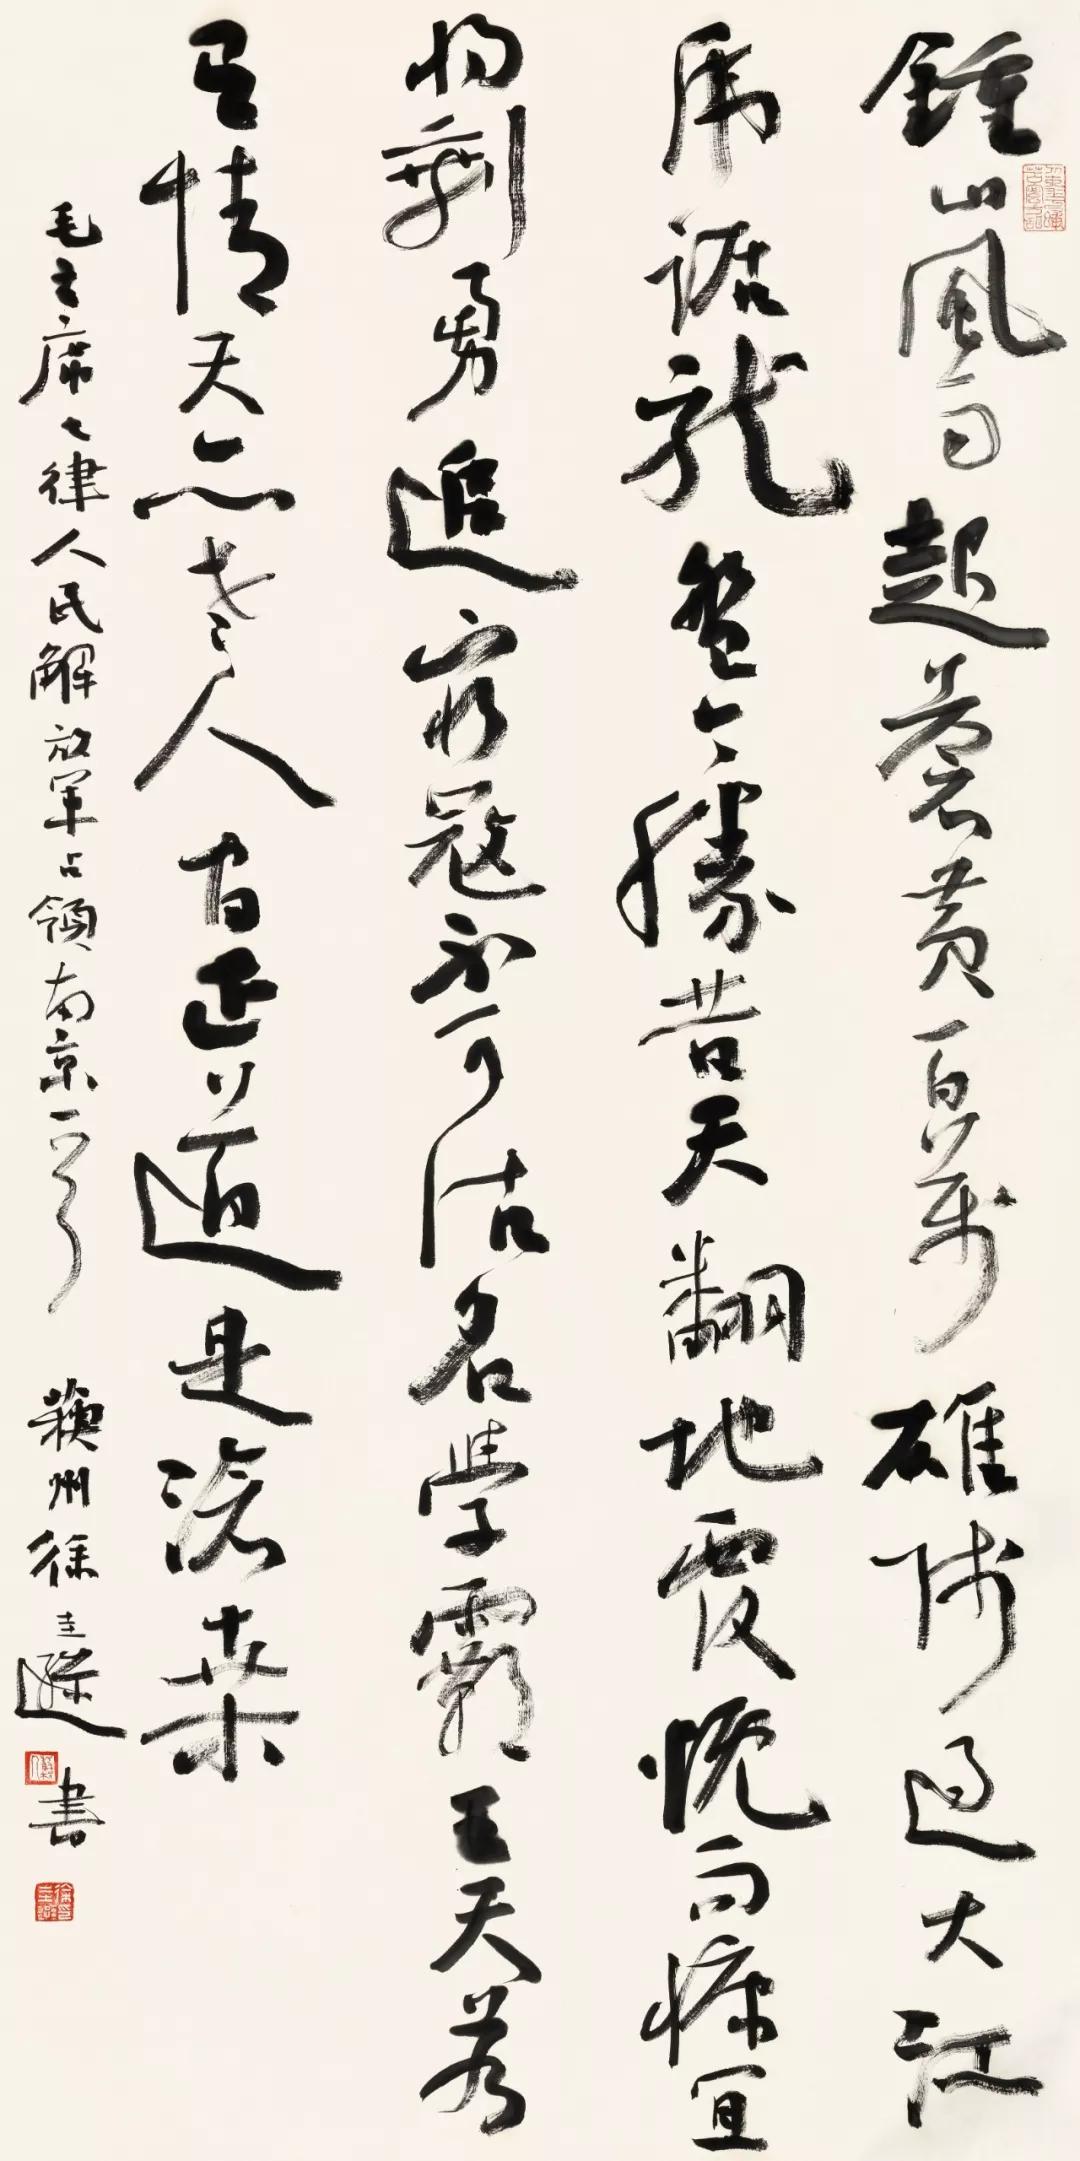 鍾山風雨起蒼黄百萬雄師過大江
虎踞龍盤今勝昔天翻地覆慨而慷宜
将剩勇追窮寇不可沽名學霸王天若
有情天亦老人間正道是滄桑
毛主席七律人民解放軍占領南京一首 蘇州徐圭遜書